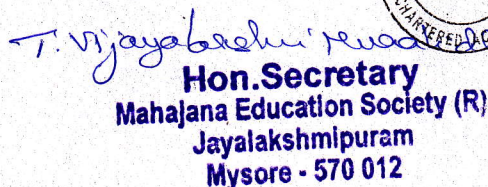 CHARTERED AC
T. Vijayalakshmi
Hon.Secretary
Mahajana Education Society (R)
Jayalakshmipuram
Mysore - 570 012